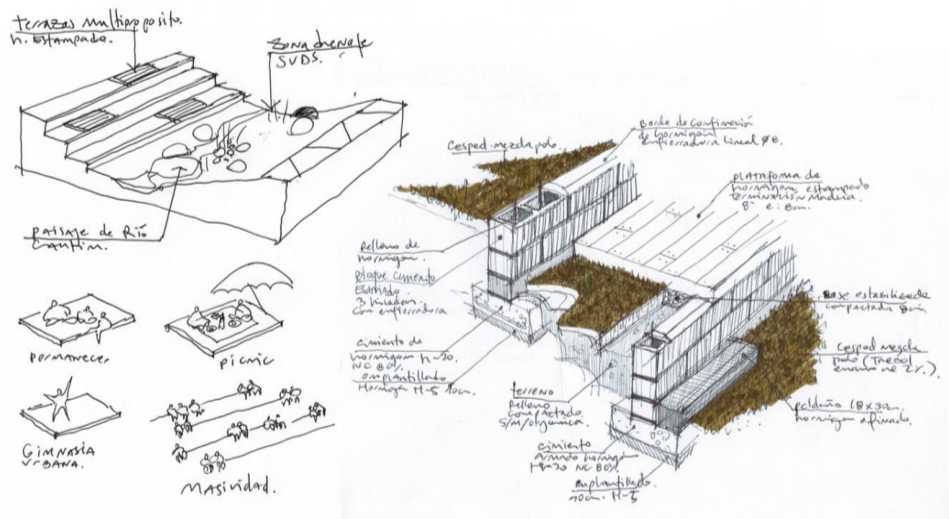 terrazas multiproposito.
h. Estampado.
zona drenaje
SUDS.
paisaje de Río
Cautín.
permanecer
picnic
Gimnasia
urbana.
Masividad.
Cesped mezcla polo.
Borde de confinación
de hormigón
enfierradura lineal Ø8.
PLATAFORMA de
hormigón estampado
terminación Madera
e: 8cm.
Relleno de
hormigón.
Bloque cemento
Estriado
3
con enfierradura
cimiento de
hormigón H-20.
NC 80%.
emplantillado
Hormigón H-5 10cm.
terreno
Relleno
compactado
S/M/orgánica.
cimiento
Armado hormigón
H-20 NC 80%.
emplantillado.
10cm. H-5
Base estabilizada
compactada 8cm.
Cesped mezcla
polo (Trebol
enano al 2%.)
peldaño 18x30
hormigón afinado.